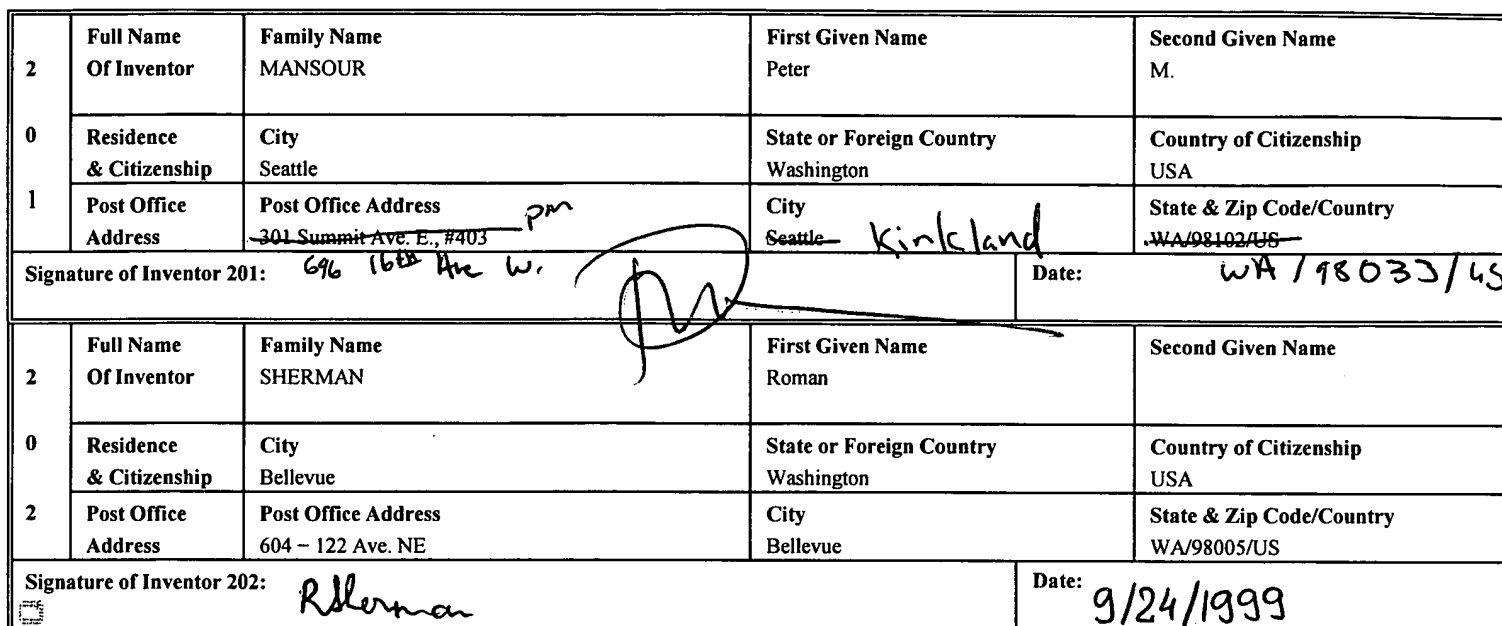 2 0 1
Full Name Of Inventor
Family Name
MANSOUR
First Given Name
Peter
Second Given Name
M.
Residence & Citizenship
City
Seattle
State or Foreign Country
Washington
Country of Citizenship
USA
Post Office Address
Post Office Address
301 Summit Ave. E., #403
pm
696 16th Ave W.
City
Seattle Kirkland
State & Zip Code/Country
WA/98102/US
WA/98033/US
Signature of Inventor 201:
Date:
2 0 2
Full Name Of Inventor
Family Name
SHERMAN
First Given Name
Roman
Second Given Name
Residence & Citizenship
City
Bellevue
State or Foreign Country
Washington
Country of Citizenship
USA
Post Office Address
Post Office Address
604 – 122 Ave. NE
City
Bellevue
State & Zip Code/Country
WA/98005/US
Signature of Inventor 202: RSherman
Date: 9/24/1999